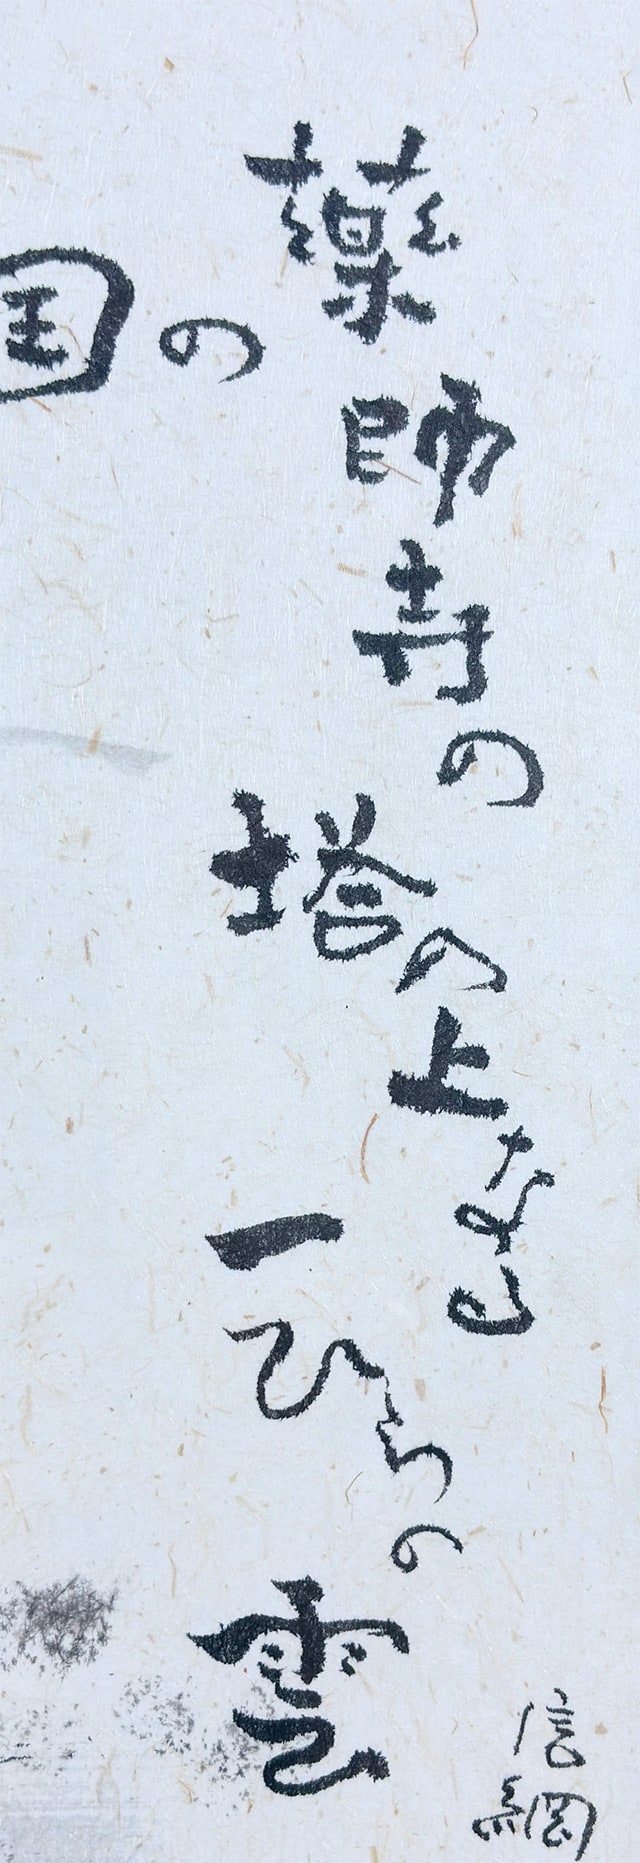 国の
薬師寺の
塔の上なる
一ひらの
雲
信綱